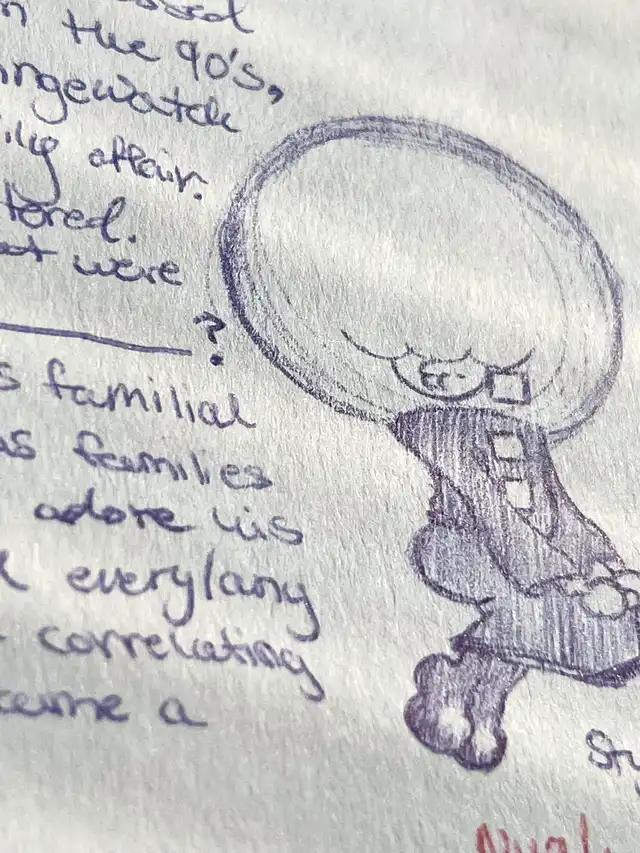 n the 90's,
ngewatch
ily affair.
tored.
were
?
s familial
as families
adore his
everylany
correlating
came a
Sty